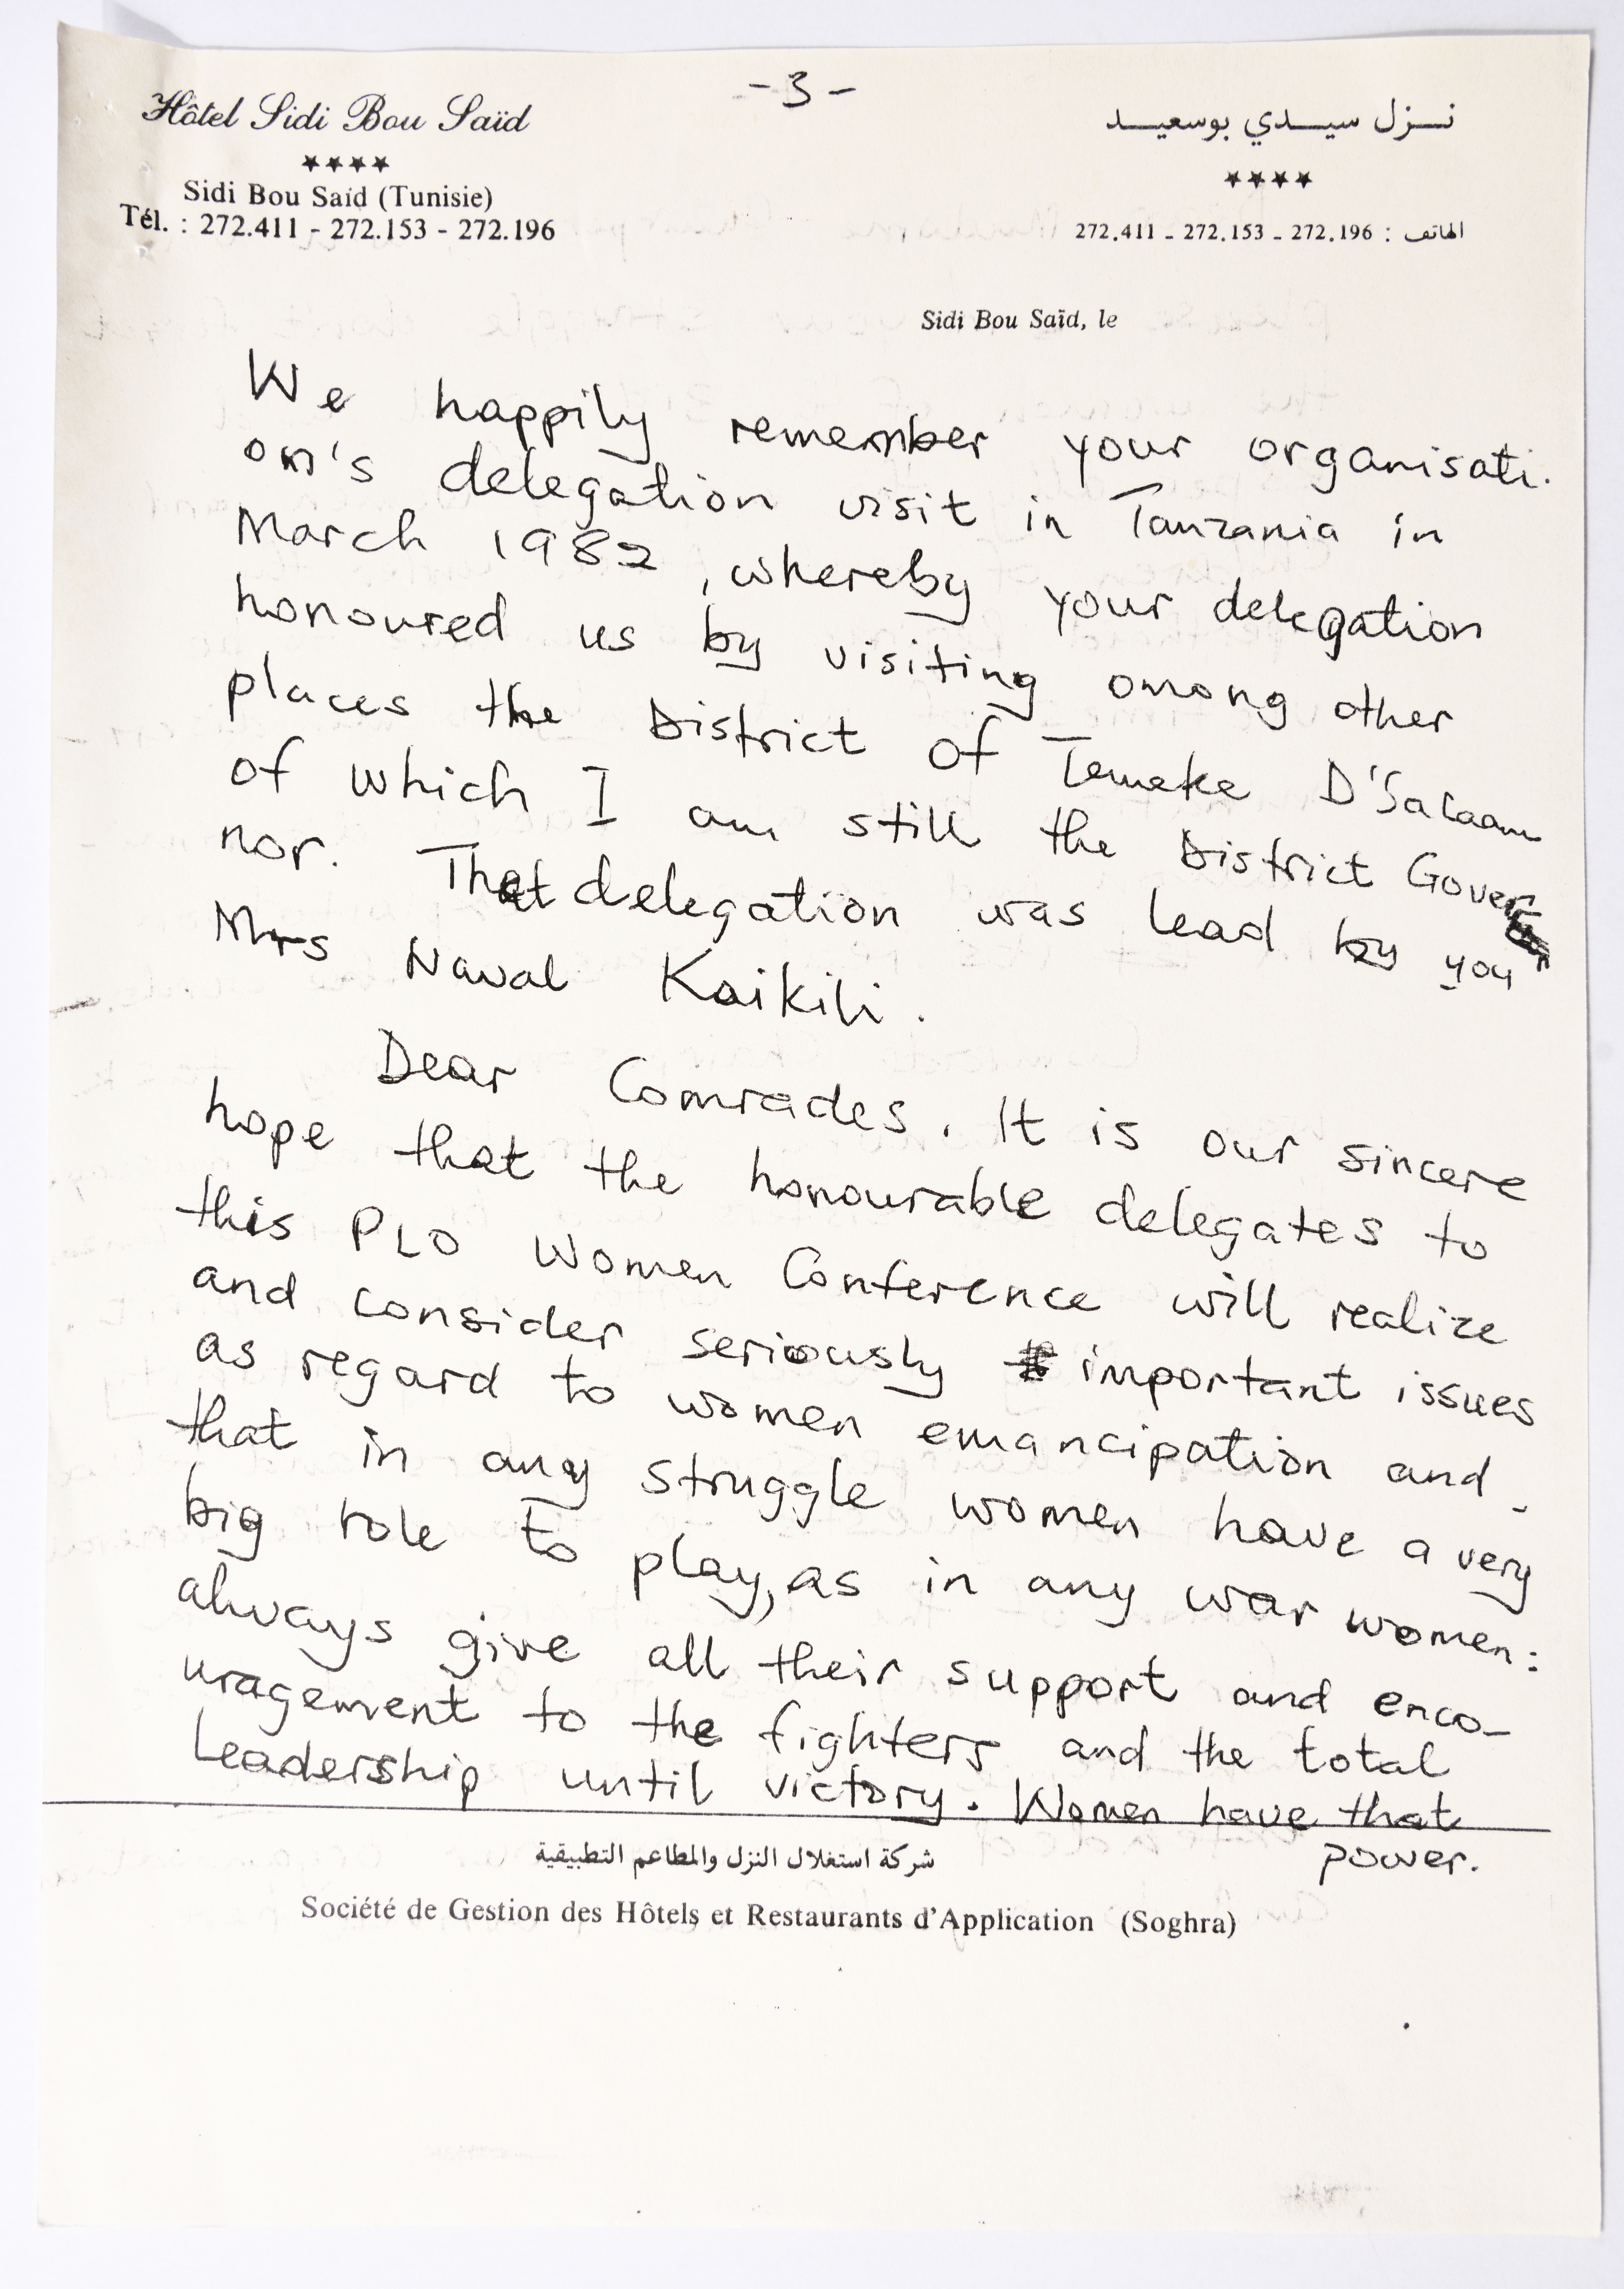 - 3 -
Hôtel Sidi Bou Saïd
★★★★
Sidi Bou Saïd (Tunisie)
Tél. : 272.411 - 272.153 - 272.196
نـزل سيـدي بوسعيـد
★★★★
الهاتف : 272.196 - 272.153 - 272.411
Sidi Bou Saïd, le
We happily remember your organisati.
on's delegation visit in Tanzania in
March 1982, whereby your delegation
honoured us by visiting among other
places the District of Temeke D'Salaam
of which I am still the District Gover
nor. That delegation was lead by you
Mrs Naval Kaikili.
Dear Comrades. It is our sincere
hope that the honourable delegates to
this PLO Women Conference will realize
and consider seriously important issues
as regard to women emancipation and
that in any struggle women have a very
big role to play, as in any war women:
always give all their support and enco-
uragement to the fighters and the total
Leadership until victory. Women have that
power.
شركة استغلال النزل والمطاعم التطبيقية
Société de Gestion des Hôtels et Restaurants d'Application (Soghra)